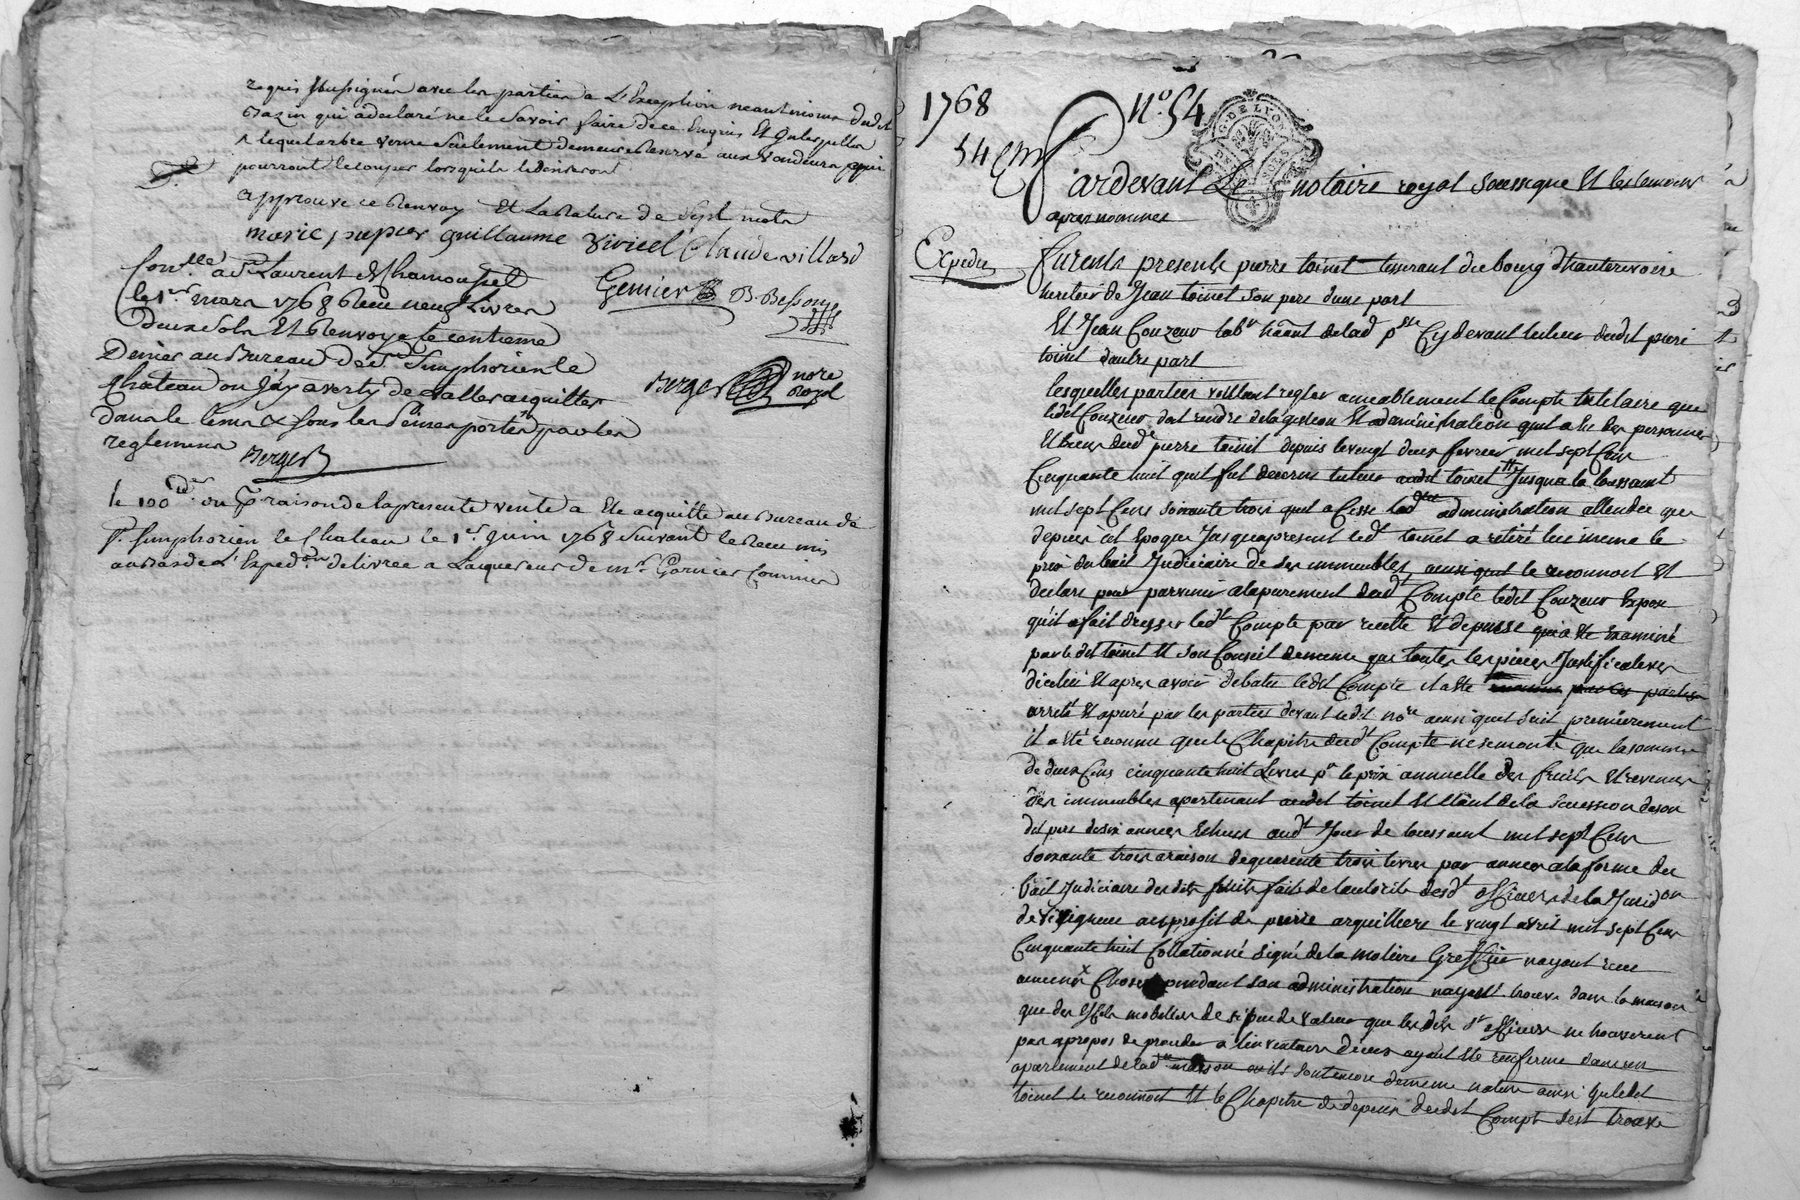 requis soussignés avec les parties a L'Exception neantmoins dudit
Bazin qui a declaré ne le savoir faire de ce Enquis Et
lequel arbre verne seulement demeure reservé aux vandeurs qui
pourront le couper lorsquils le desireront
approuvé ce Renvoy Et la Rature de sept mots
marie papier guillaume Viricel Claude villard
Con^llé a S^t Laurent de Chamousset
Le 1^er mars 1768 Receu neuf Livres
Deux sols Et Renvoyé le centieme
Denier au Bureau de S^t Simphorien le
Chateau ou j'ay averty de l'aller acquitter
dans le tems & sous les Peines portées par les
reglemens Berger
Genier B. Besson
Berger nore Royal
le 100^e dn pr raison de la presente vente a Eté acquitté au Bureau de
S^t Simphorien le Chateau le 1^er juin 1768 suivant le Receu mis
au bas de L'Exped^on delivrée a L'acquereur de m^r Garnier Commis
1768 N° 54
54
G. DE LYON
Pardevant Le notaire royal soussigné Et les temoins
apres nommés
Expedié
Furents presents pierre toinet tisserant du bourg d'hauterivoire
heritier de Jean toinet son pere d'une part
Et Jean Couzeur lab^r h^ant de lad p^sse Cy devant tuteur dudit pierre
toinet d'autre part
lesquelles parties veillant regler amiablement le Compte tutelaire que
ledit Couzeur doit rendre de la gestion Et administration quil a Eu des personne
Et biens dud^t pierre toinet depuis le vingt deux fevrier mil sept Cens
Cinquante huit quil fut decerné tuteur audit toinet Jusqua la toussaint
mil sept Cens soixante trois quil a Cessé lad^tte administration attendu que
depuis cet Epoque Jusqua present led^t toinet a retiré lui meme le
prix du bail Judiciaire de ses immeubles, ainsi quil le reconnoit Et
declare pour parvenir a lapurement dud^t Compte ledit Couzeur Expose
qu'il a fait dresser led^t Compte par recette Et depense qui a Eté Examiné
par le dit toinet Et son Conseil de meme que toutes les pieces Justificatives
dicelui Et apres avoir debatu ledit Compte il a Eté
arreté Et apuré par les parties devant ledit no^re ainsi quil suit premierement
il a Eté reconnu que le Chapitre dud^t Compte ne se monte que la somme
de deux Cens cinquante huit Livres p^r le prix annuelle des fruits Et revenus
des immeubles apartenant audit toinet Et Etant de la succession de son
dit pere de six années Echues aud^t Jour de toussaint mil sept Cens
soixante trois a raison de quarente trois livres par année a la forme du
bail Judiciaire des dits fruits fait de lautorité desd^t officiers de la Jurid^on
de au profit de pierre arquilliere le vingt avril mil sept Cens
Cinquante huit Collationné signé de la moliere Greffier nayant receu
aucune Chose pendant son administration nayant trouvé dans la maison
que des Effets mobiliers de si peu de valeur que les dits s^r officiers ne trouverent
pas a propos de proceder a linventaire diceux ayant Eté renfermé dans un
apartement de lad^tte maison ou ils sont encore de meme nature ainsi que ledit
toinet le reconnoit Et le Chapitre de depense dudit Compte sest trouvé